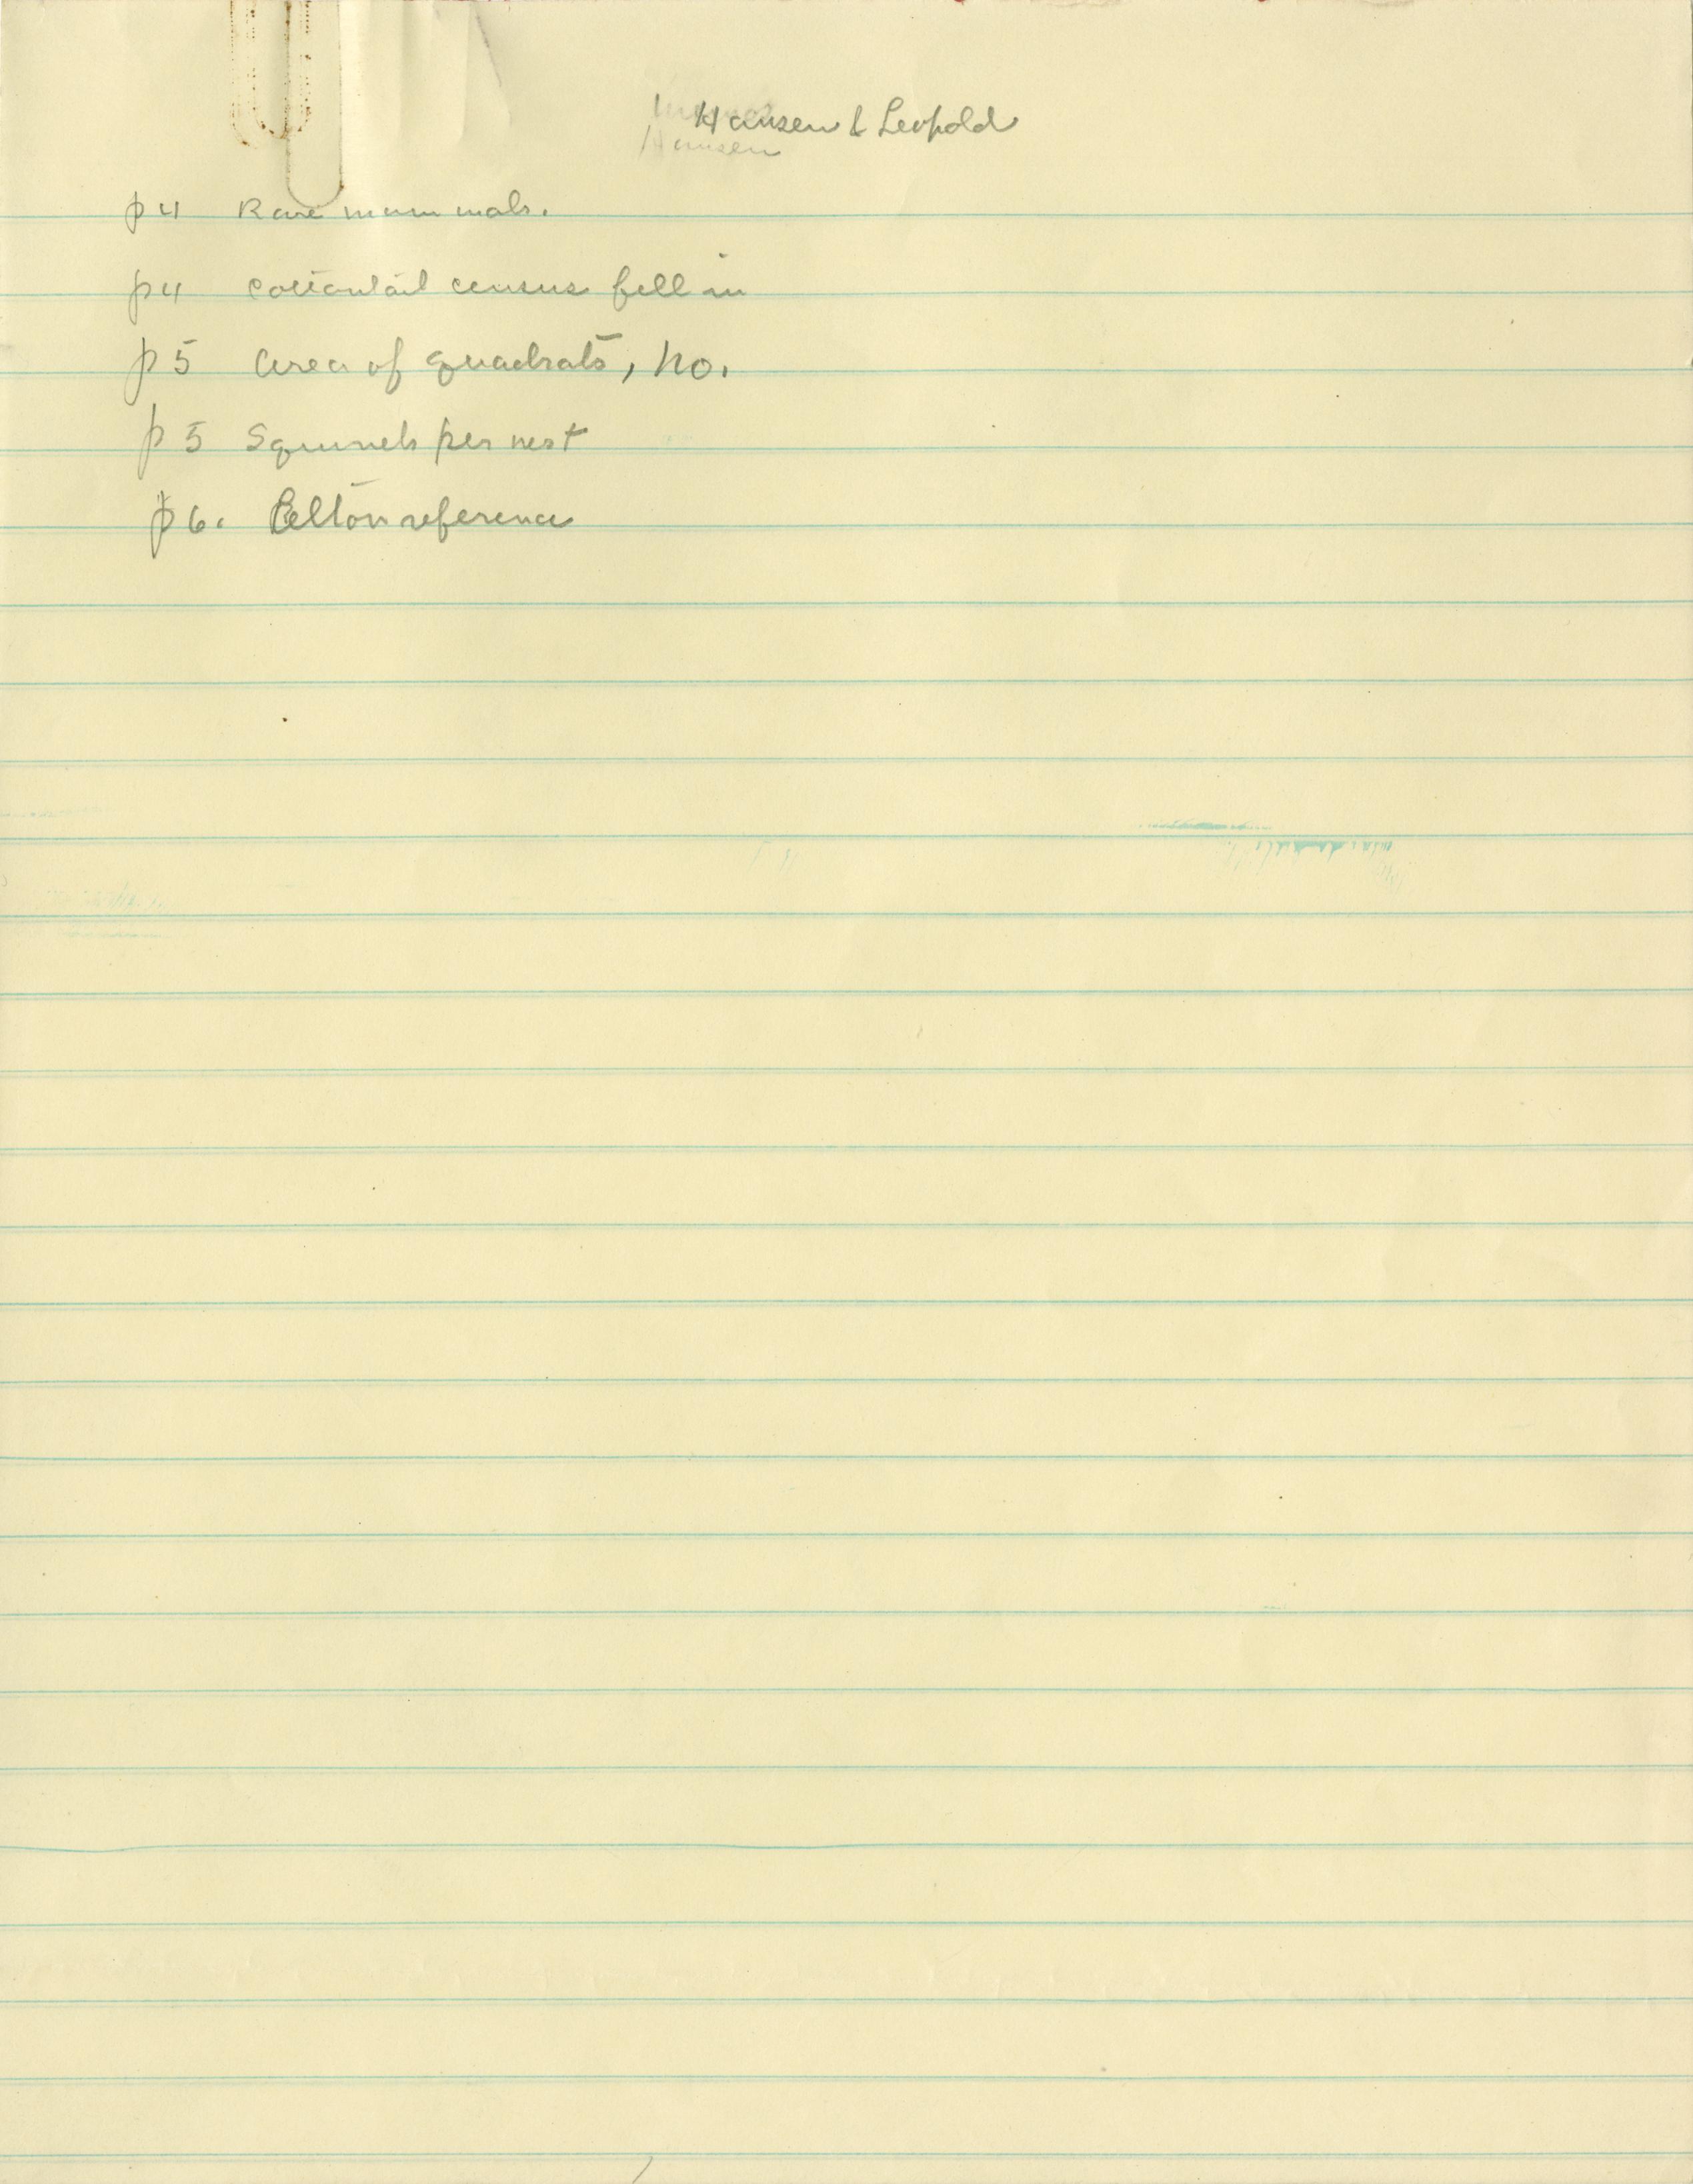 Hansen & Leopold
Hansen
p4 Rare mammals.
p4 Cottontail census fell in
p5 Area of quadrats, no.
p5 Squirrels per nest
p6. reference